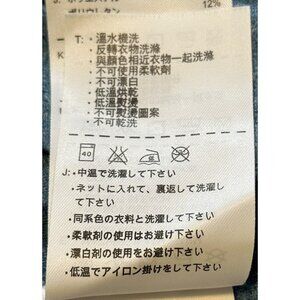 ポリウレタン 12%
T: ・溫水機洗
・反轉衣物洗滌
・與顏色相近衣物一起洗滌
・不可使用柔軟劑
・不可漂白
・低溫烘乾
・低溫熨燙
・不可熨燙圖案
・不可乾洗
40
J: ・中温で洗濯して下さい
・ネットに入れて、裏返して洗濯し
て下さい
・同系色の衣料と洗濯して下さい
・柔軟剤の使用はお避け下さい
・漂白剤の使用をお避け下さい
・低温でアイロン掛けをして下さい